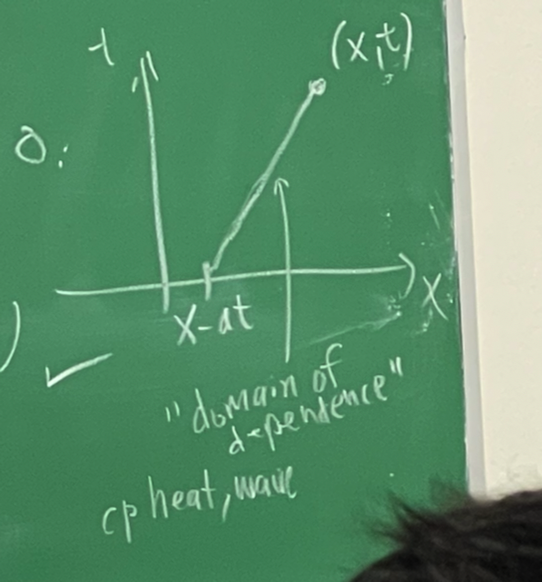 t
(x,t)
0:
x
x-at
)
"domain of
dependence"
cp heat, wave